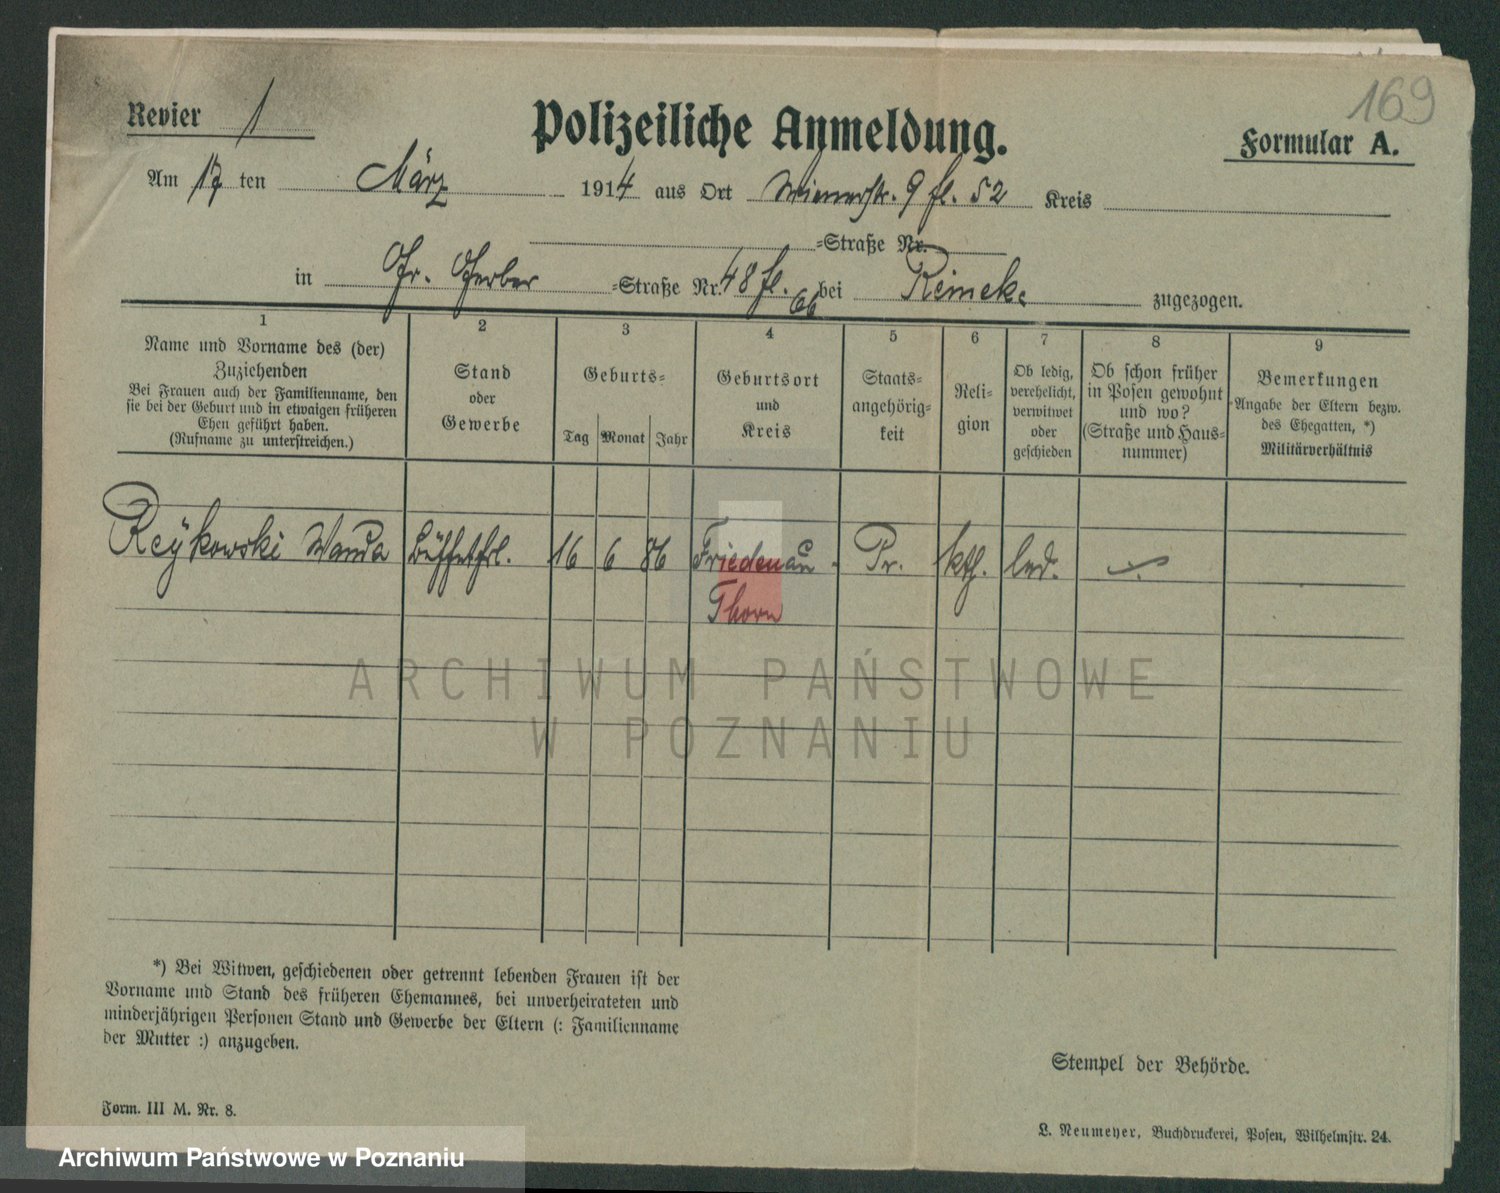 169
Revier 1
Polizeiliche Anmeldung.
Formular A.
Am 17 ten März 1914 aus Ort Wienerstr. 9 fl. 52 Kreis
=Straße Nr.
in Gr. Gerber =Straße Nr. 48 fl. bei Reimek. zugezogen.
66
1 2 3 4 5 6 7 8 9
Name und Vorname des (der)
Zuziehenden
Bei Frauen auch der Familienname, den
sie bei der Geburt und in etwaigen früheren
Ehen geführt haben.
(Rufname zu unterstreichen.)
Stand
oder
Gewerbe
Geburts=
Tag Monat Jahr
Geburtsort
und
Kreis
Staats=
angehörig=
keit
Reli=
gion
Ob ledig,
verehelicht,
verwitwet
oder
geschieden
Ob schon früher
in Posen gewohnt
und wo?
(Straße und Haus=
nummer)
Bemerkungen
Angabe der Eltern bezw.
des Ehegatten, *)
Militärverhältnis
Reÿkowski Wanda Büffetfrl. 16 6 86 Friedenau - Pr. kth. led. -/.
Thorn
ARCHIWUM PAŃSTWOWE
W POZNANIU
*) Bei Witwen, geschiedenen oder getrennt lebenden Frauen ist der
Vorname und Stand des früheren Ehemannes, bei unverheirateten und
minderjährigen Personen Stand und Gewerbe der Eltern (: Familienname
der Mutter :) anzugeben.
Stempel der Behörde.
Form. III M. Nr. 8.
L. Neumeyer, Buchdruckerei, Posen, Wilhelmstr. 24.
Archiwum Państwowe w Poznaniu